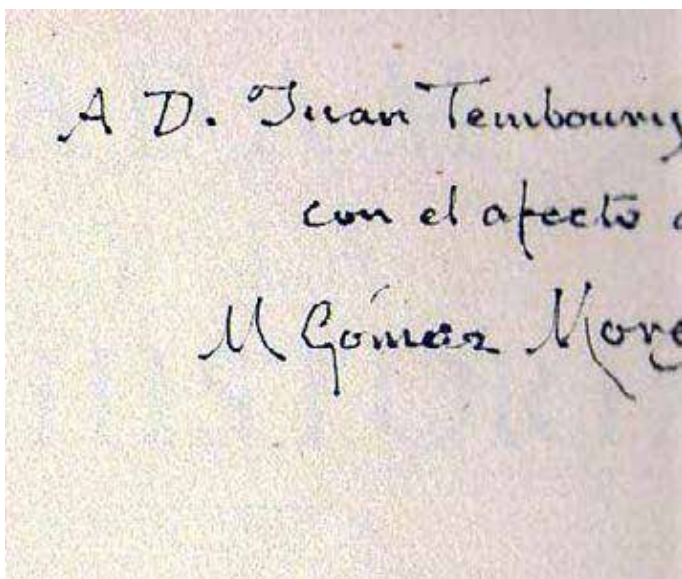 A D. Juan Temboury
con el afecto
M Gómez More